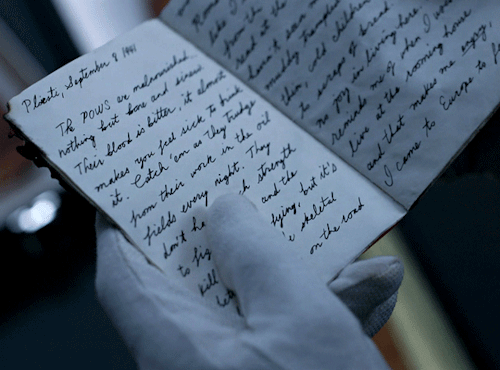 Ploesti, September 8, 1941
The POWS are malnourished,
nothing but bone and sinew
Their blood is bitter, it almost
makes you feel sick to drink
it. Catch 'em as they trudge
from their work in the oil
fields every night. They
don't ha h strength
to fig and the
kill dying, but it's
bet e skeletal
on the road
like I
from the
at the
don't seem
muddy trampled
thin, cold children
to scraps of bread
no joy in living here
reminds me of when I
live at the rooming house
and that makes me angry,
I came to Europe to f